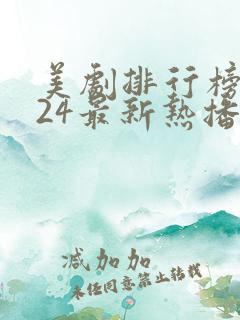 美剧排行榜
24最新热播
减加加
未经同意禁止转载